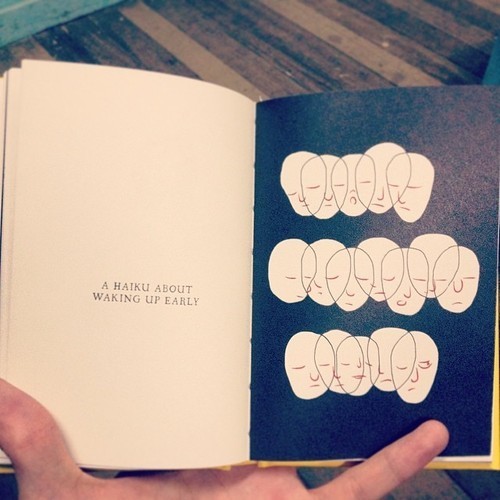 A HAIKU ABOUT
WAKING UP EARLY